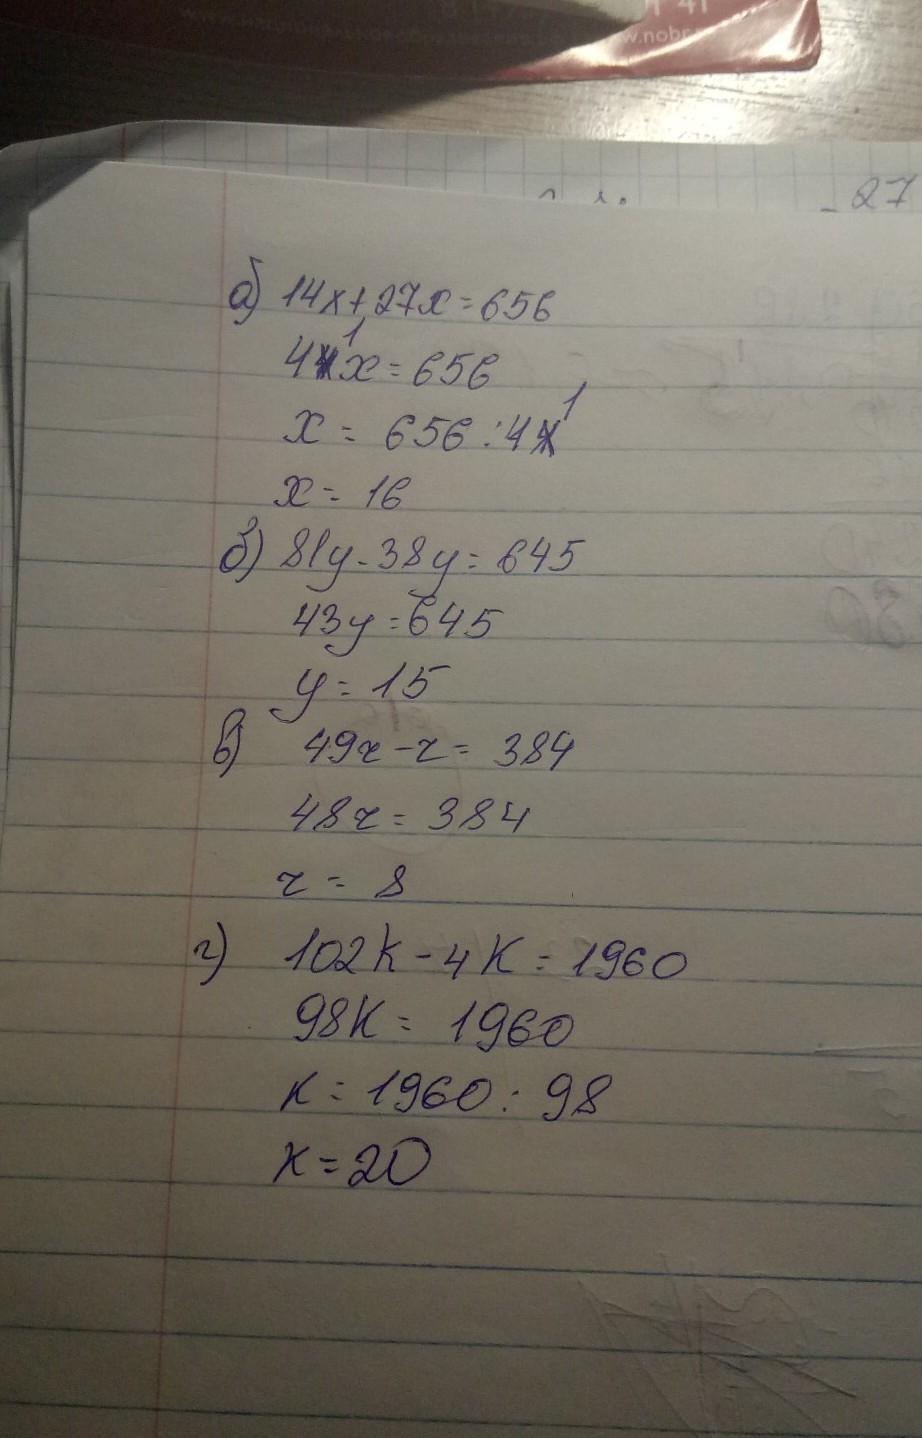 27
а) 14x+27x=656
41x=656
x = 656:41
x = 16
б) 81y-38y=645
43y=645
y = 15
в) 49z-z= 384
48z= 384
z = 8
г) 102k-4k=1960
98k= 1960
k=1960:98
k=20